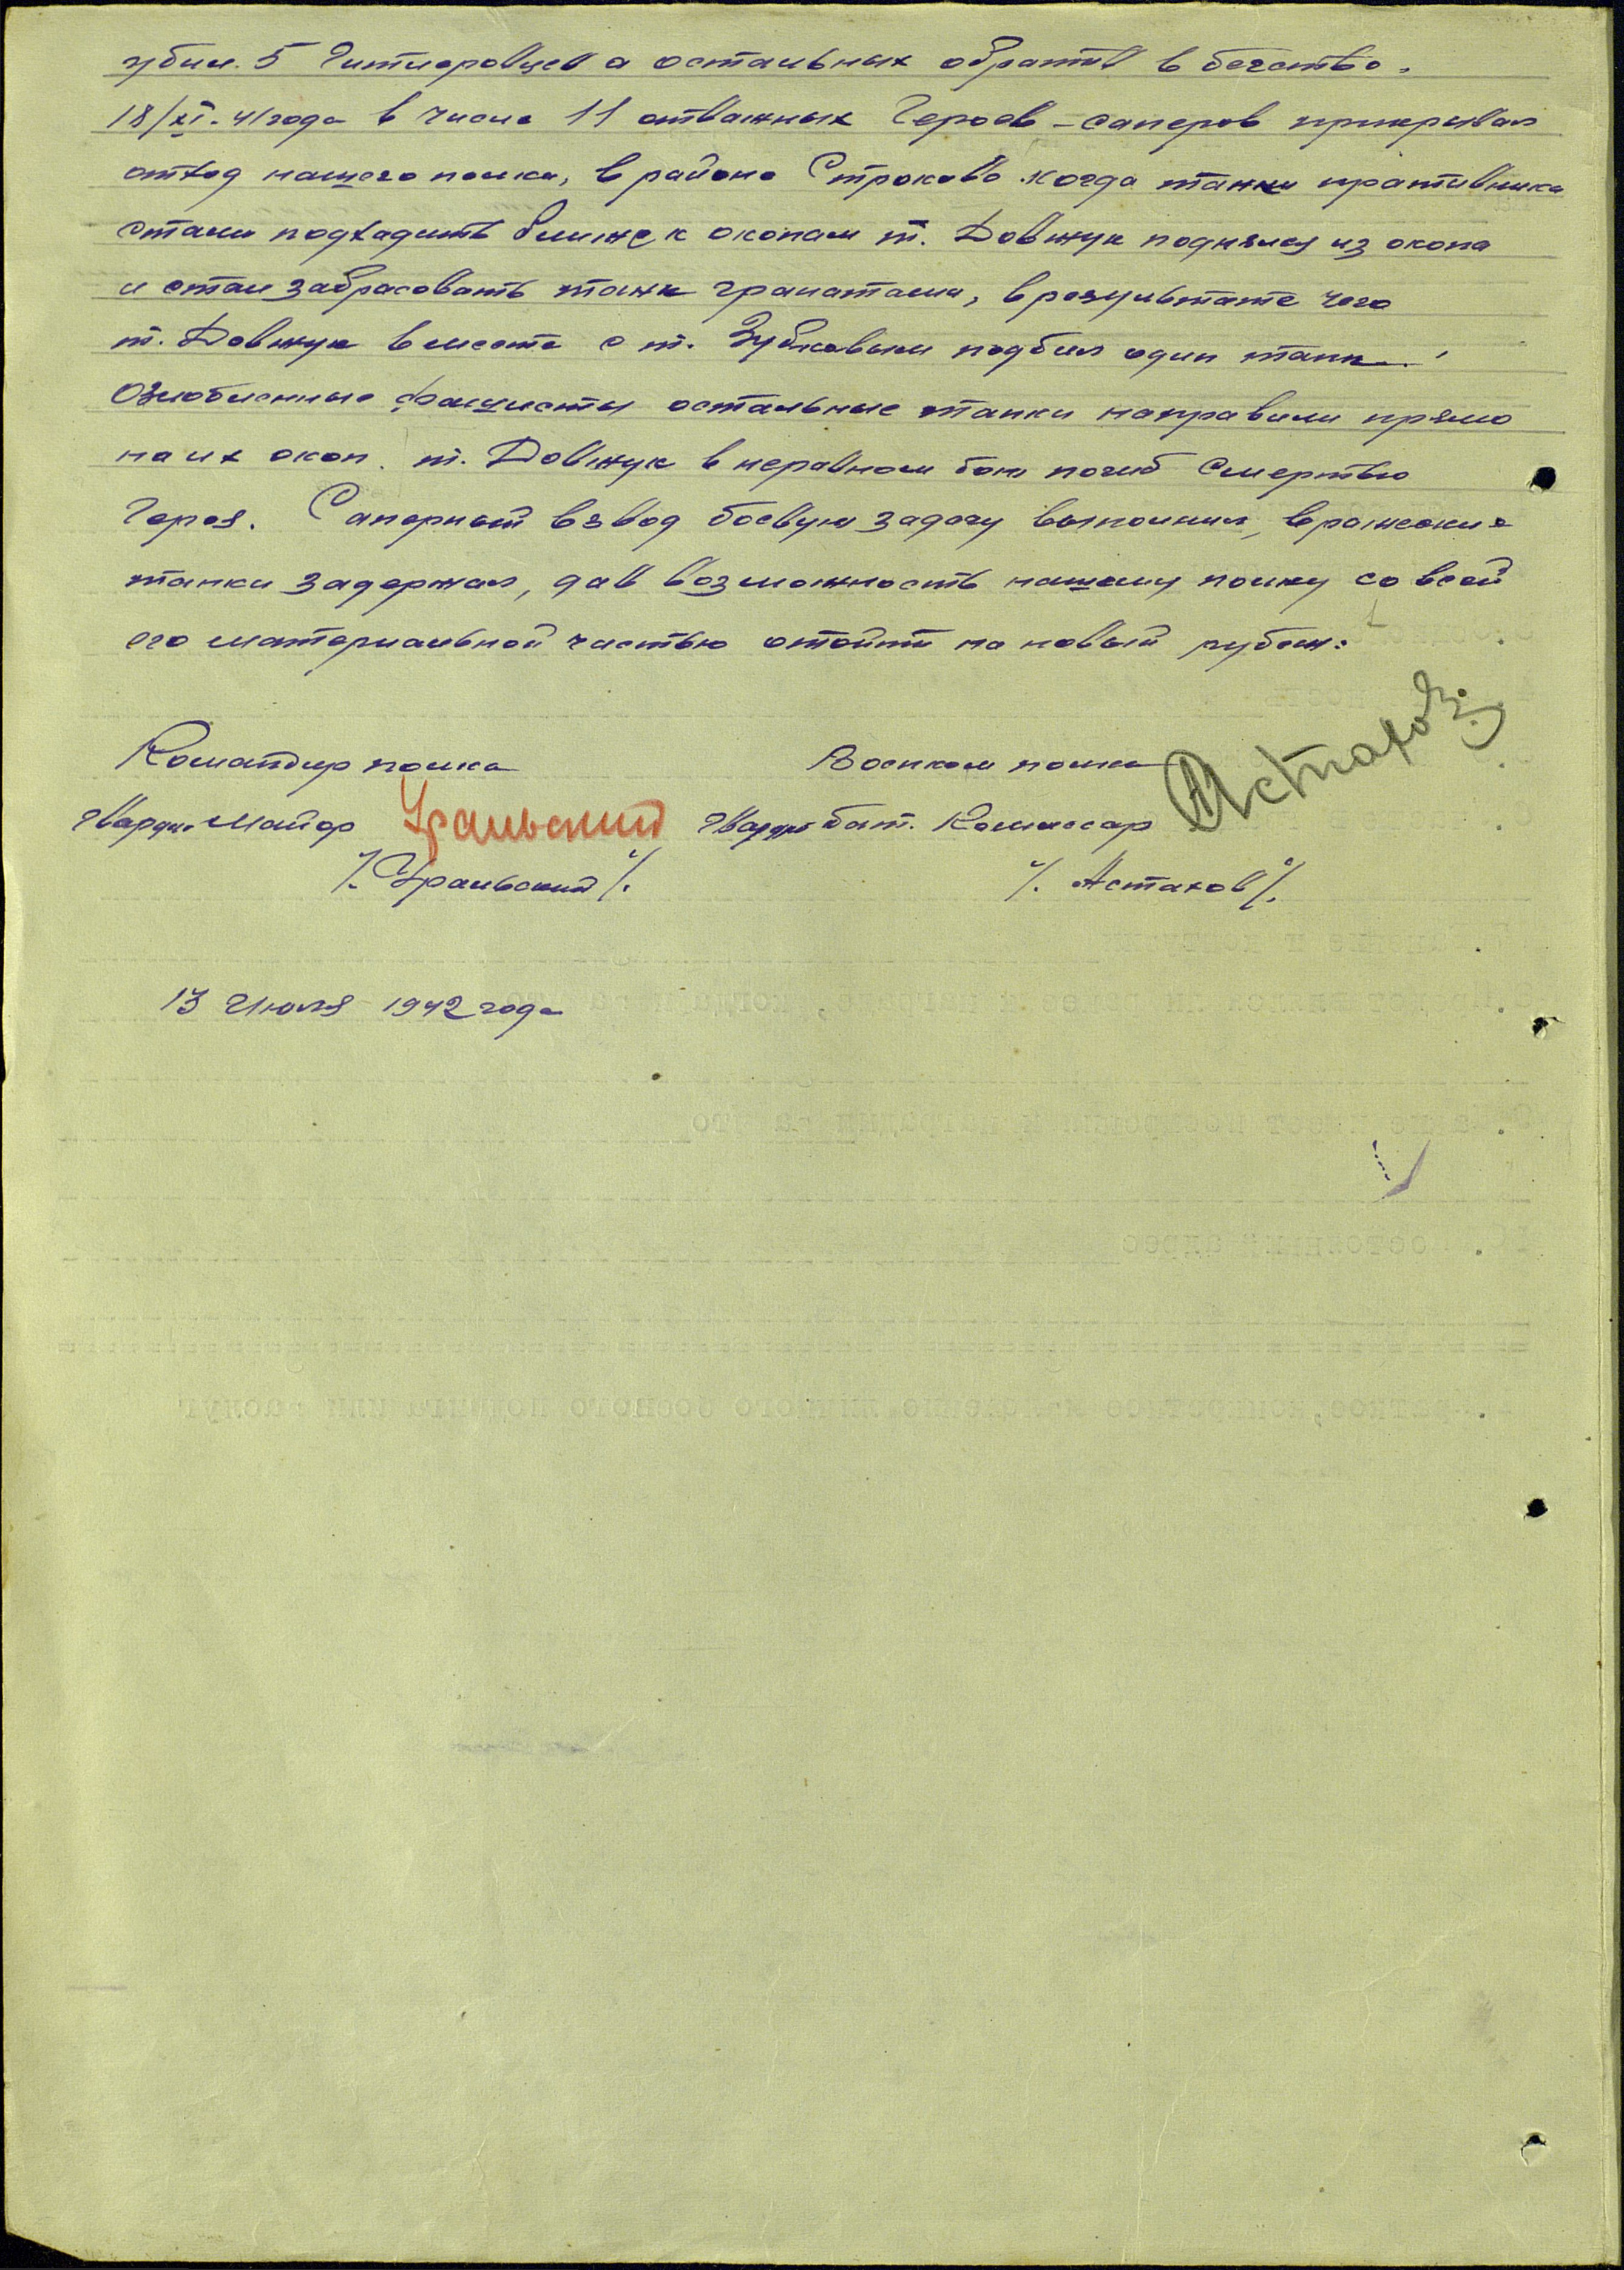 убил 5 Гитлеровцев а остальных обратив в бегство.
18/XI-41 года в числе 11 отважных Героев-саперов прикрывал
отход нашего полка, в районе Строково. когда танки пративника
стали подхадить ближе к окопам т. Довжук поднялся из окопа
и стал забрасовать танк гранатами, в результате чего
т. Довжук вместе с т. Зубковым подбил один танк.
Озлобленные фашисты остальные танки направили прямо
на их окоп. т. Довжук в неравном бою погиб Смертью
Героя. Саперный взвод боевую задачу выполнил, вражеские
танки задержал, дав возможность нашему полку со всей
его материальной частью отойти на новый рубеж.
Командир полка Военком полка Астахов
Гвардии Майор Уральский Гвардии бат. Комиссар
/. Уральский /. /. Астахов /.
13 Июля 1942 года